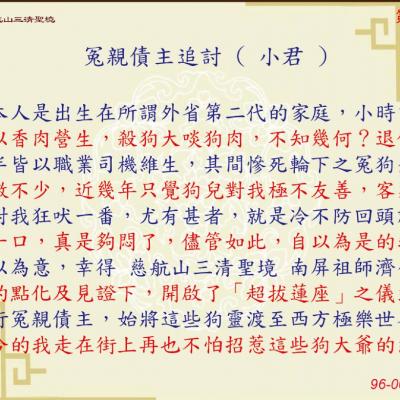 航山三清聖境
冤親債主追討 ( 小君 )
本人是出生在所謂外省第二代的家庭，小時
以香肉營生，殺狗大啖狗肉，不知幾何？退
年皆以職業司機維生，其間慘死輪下之冤狗
數不少，近幾年只覺狗兒對我極不友善，客
對我狂吠一番，尤有甚者，就是冷不防回頭
一口，真是夠悶了，儘管如此，自以為是的
以為意，幸得 慈航山三清聖境 南屏祖師濟
的點化及見證下，開啟了「超拔蓮座」之儀
行冤親債主，始將這些狗靈渡至西方極樂世
今的我走在街上再也不怕招惹這些狗大爺的
96-0